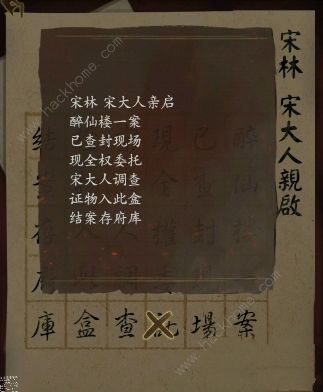 宋林 宋大人親啟
宋林 宋大人亲启
醉仙楼一案
已查封现场
现全权委托
宋大人调查
证物入此盒
结案存府库
庫 盒 查 託 場 案
www.hackhome.com